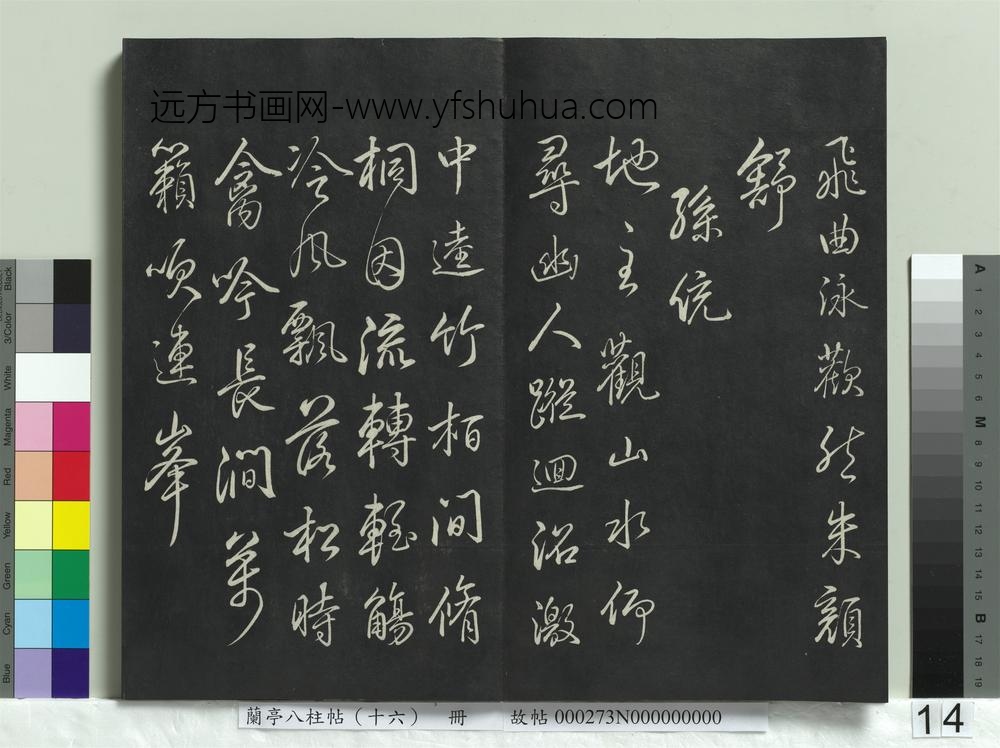 远方书画网-www.yfshuhua.com
飛曲泳歡然朱顏
舒
孫統
地主觀山水仰
尋幽人蹤迴沼激
中逵竹栢間脩
桐因流轉輕觴
冷風飄落松時
禽吟長澗萬
籟吹連峯
蘭亭八柱帖（十六） 冊 故帖 000273N000000000
14
Black
3/Color
White
Magenta
Red
Yellow
Green
Cyan
Blue
A 1 2 3 4 5 6 M 8 9 10 11 12 13 14 15 B 17 18 19